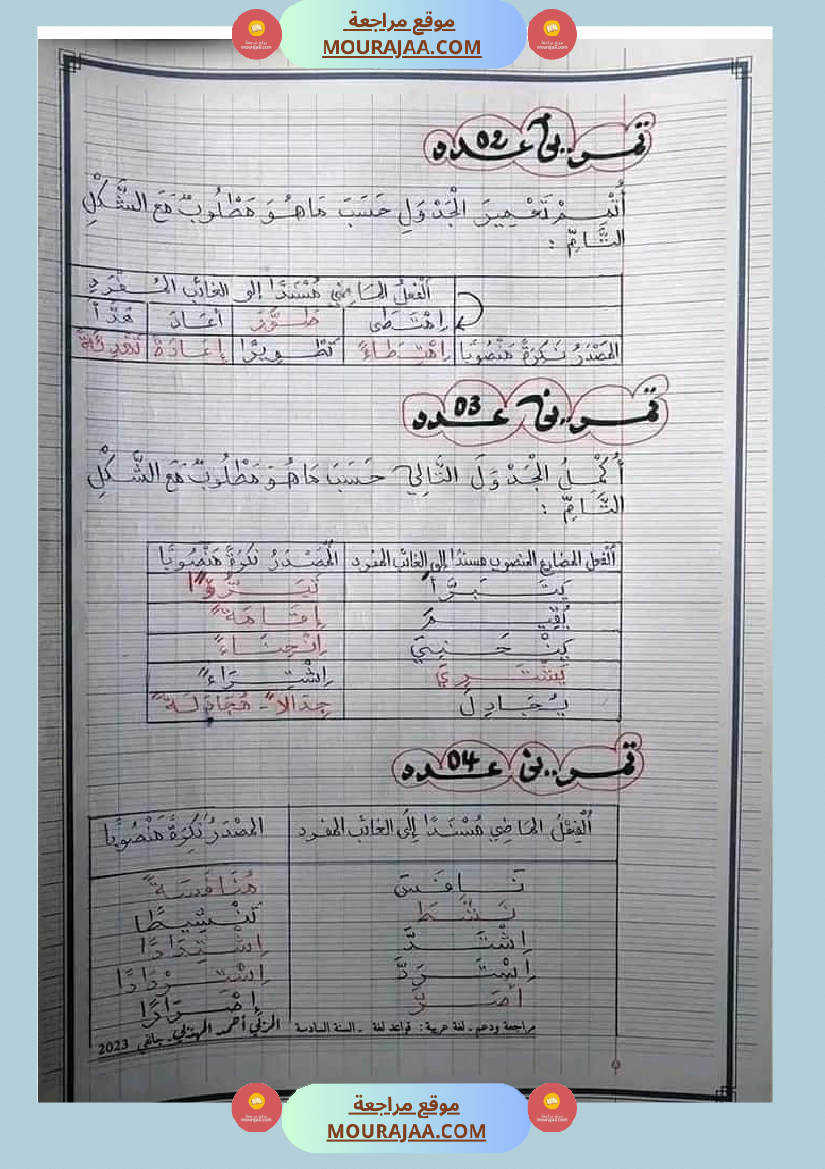 موقع مراجعة
MOURAJAA.COM
تمـــر..ين عـــ02ـــدد
أُتْمِمْ تَعْمِيرَ الْجَدْوَلِ حَسَبَ مَا هُوَ مَطْلُوبٌ مَعَ الشَّكْلِ
التَّامِّ :
اَلْفِعْلُ المَاضِي مُسْنَدًا إلى الغائب المُفْرَدِ
اِهْتَدَى طَوَّرَ أَعَادَ هَدَّأَ
المَصْدَرُ نَكِرَةً مَنْصُوبًا اِهْتِدَاءً تَطْوِيرًا إِعَادَةً تَهْدِئَةً
تمـــر..ين عـــ03ـــدد
أُكْمِلُ الْجَدْوَلَ التَّالِي حَسَبَ مَا هُوَ مَطْلُوبٌ مَعَ الشَّكْلِ
التَّامِّ :
اَلْفعل المضارع المنصوب مسندًا إلى الغائب المفرد المَصْدَرُ نَكِرَةً مَنْصُوبًا
يَتَبَرَّأَ تَبَرُّؤًا
يُقِيمَ إِقَامَةً
يَنْحَنِيَ اِنْحِنَاءً
يَشْتَرِيَ اِشْتِرَاءً
يُجَادِلَ جِدَالًا - مُجَادَلَةً
تمـــر..ين عـــ04ـــدد
اَلْفِعْلُ المَاضِي مُسْنَدًا إِلَى الغائب المفرد المَصْدَرُ نَكِرَةً مَنْصُوبًا
نَافَسَ مُنَافَسَةً
نَشَّطَ تَنْشِيطًا
اِشْتَدَّ اِشْتِدَادًا
اِسْتَرَدَّ اِسْتِرْدَادًا
أَصَرَّ إِصْرَارًا
مراجعة ودعم - لغة عربية : قواعد لغة - السنة السادسة المربّي أحمد المهذبي 2023
موقع مراجعة
MOURAJAA.COM